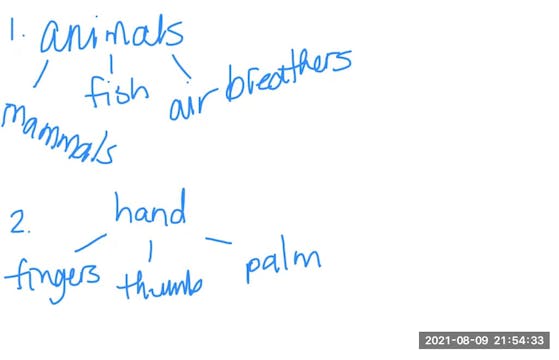 1. animals
mammals fish air breathers
2. hand
fingers thumb palm
2021-08-09 21:54:33